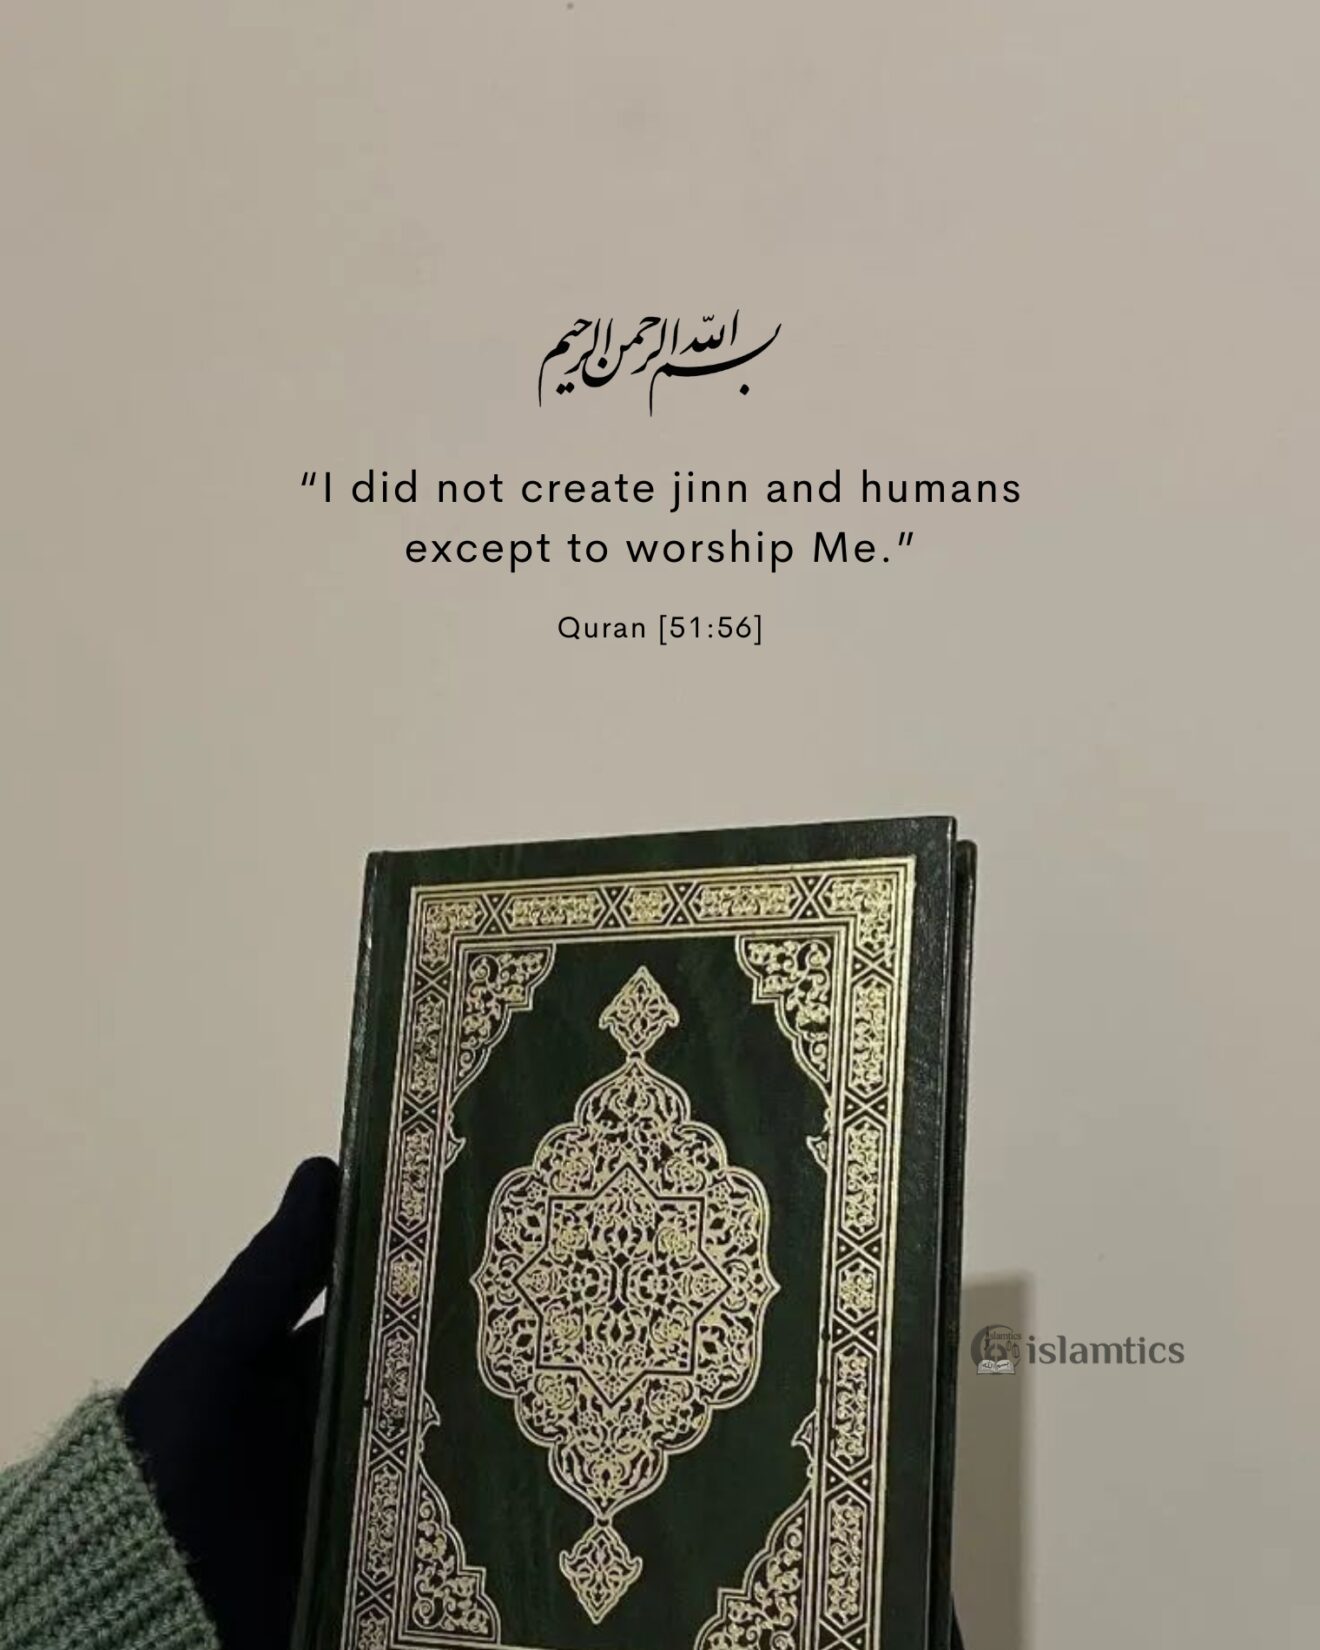 بسم الله الرحمن الرحيم
“I did not create jinn and humans
except to worship Me.”
Quran [51:56]
islamtics